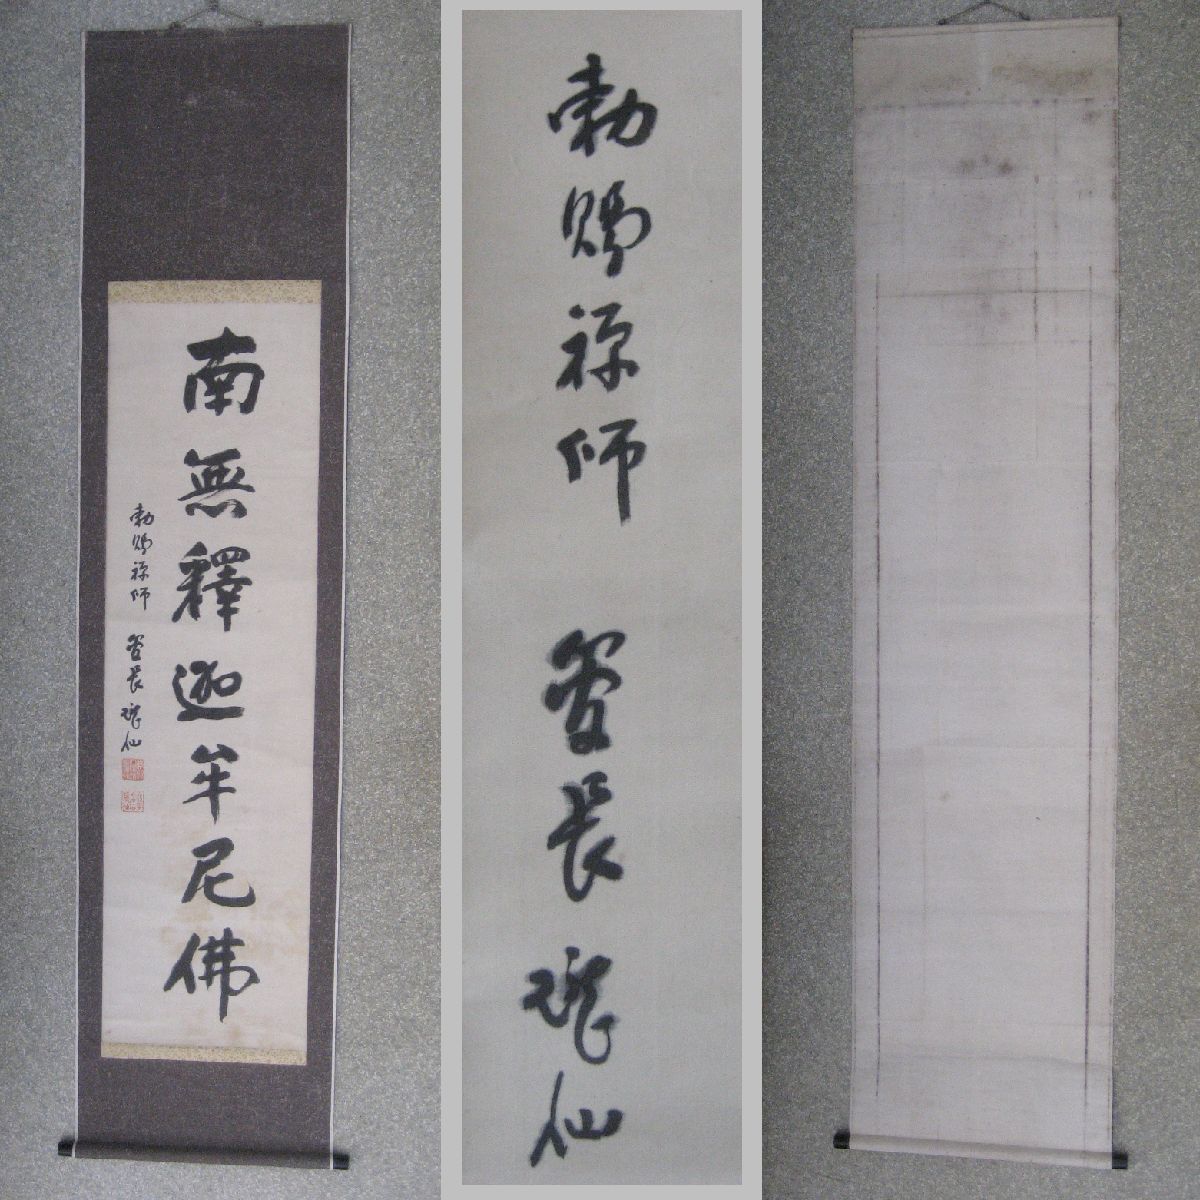 南無釋迦牟尼佛
勅賜禅師 管長 瓏仙
勅賜禅師 管長 瓏仙